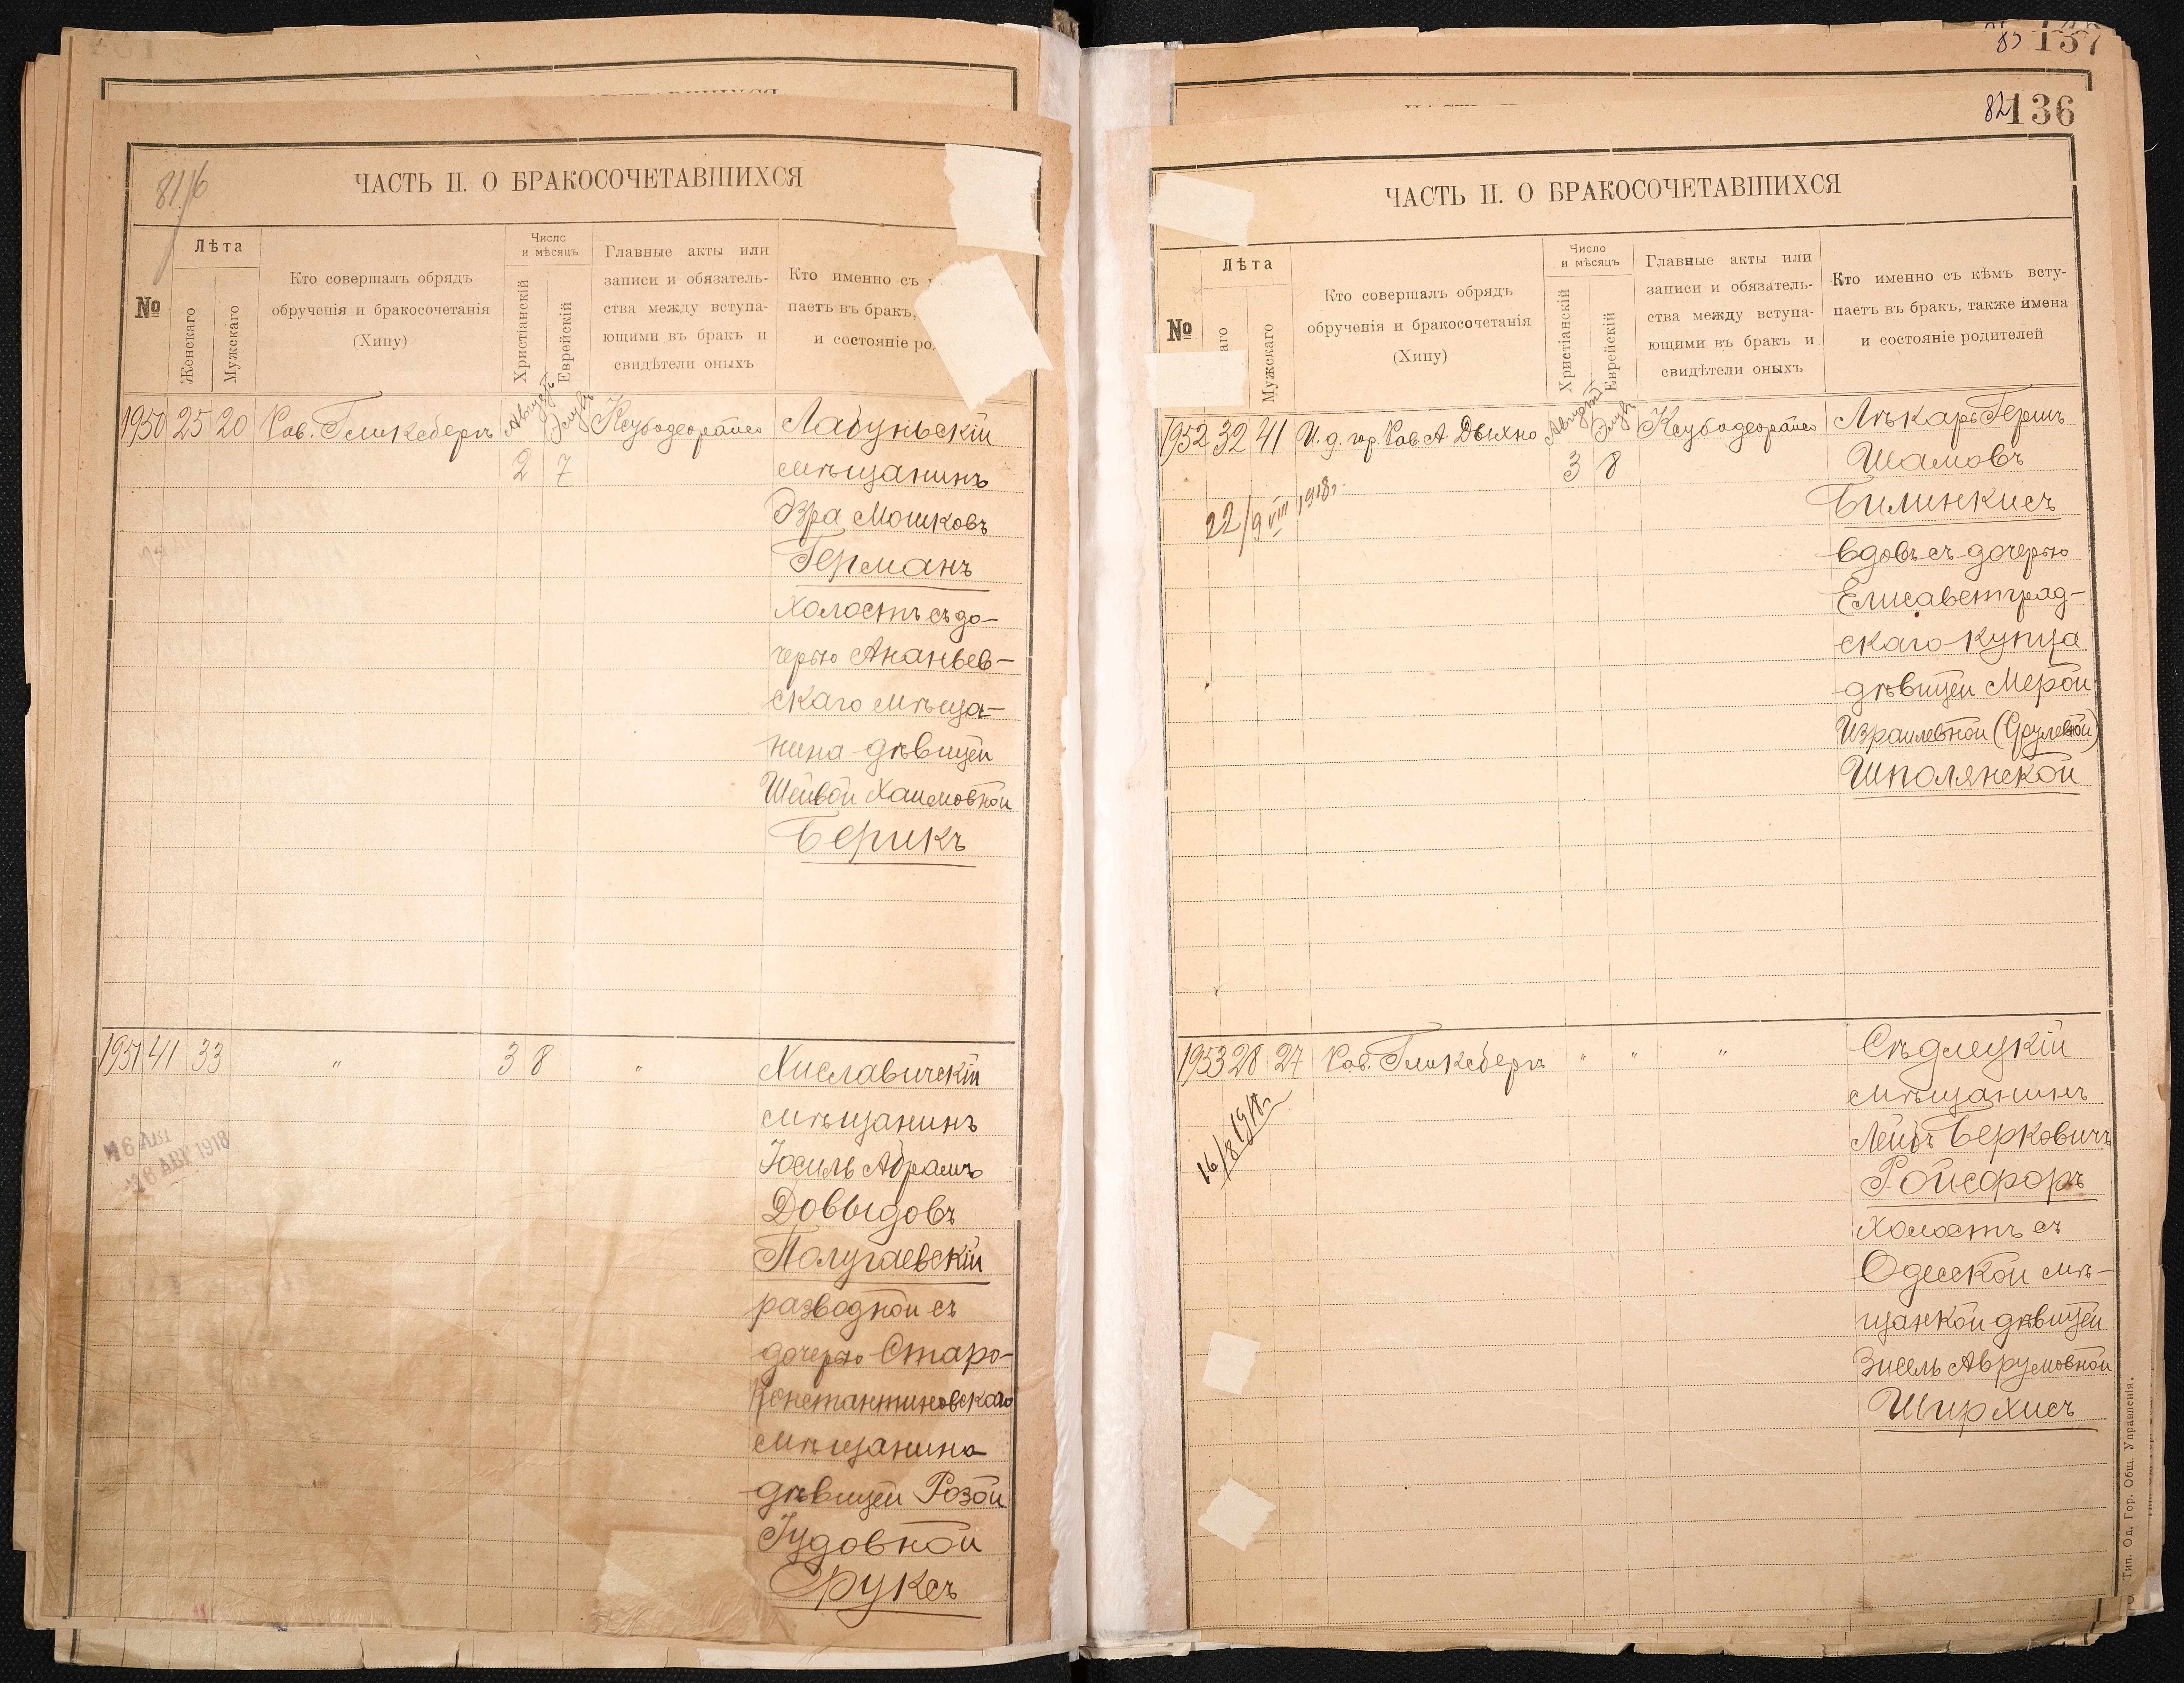 137
136
82
81/6
ЧАСТЬ II. О БРАКОСОЧЕТАВШИХСЯ
№
Лѣта
Женскаго
Мужскаго
Кто совершалъ обрядъ
обрученія и бракосочетанія
(Хипу)
Число
и мѣсяцъ
Христіанскій
Еврейскій
Главные акты или
записи и обязатель-
ства между вступа-
ющими въ бракъ и
свидѣтели оныхъ
Кто именно съ
паетъ въ бракъ,
и состояніе ро
1950 25 20 Рав. Гликсбергъ Августъ Элулъ Ксубодеорайсо Лабуньскій
2 7 мѣщанинъ
Эзра Мошковъ
Германъ
холостъ съ до-
черью Ананьев-
скаго мѣща-
нина дѣвицей
Шейвой Хаимовной
Берикъ
1951 41 33 " 3 8 " Хиславичскій
мѣщанинъ
Іосиль Абрамъ
Довыдовъ
16 АВГ 1918
Полугаевскій
разводной съ
дочерью Старо-
Константиновскаго
мѣщанина
дѣвицей Розой
Іудовной
Фруксъ
ЧАСТЬ II. О БРАКОСОЧЕТАВШИХСЯ
№
Лѣта
аго
Мужскаго
Кто совершалъ обрядъ
обрученія и бракосочетанія
(Хипу)
Число
и мѣсяцъ
Христіанскій
Еврейскій
Главные акты или
записи и обязатель-
ства между вступа-
ющими въ бракъ и
свидѣтели оныхъ
Кто именно съ кѣмъ всту-
паетъ въ бракъ, также имена
и состояніе родителей
1952 32 41 И. д. гор. Рав А. Дыхно Августъ Элулъ Ксубодеорайсо Лѣкарь Гершъ
3 8 Шамовъ
22/9 VIII 1918 г. Билинкисъ
вдовъ съ дочерью
Елисаветград-
скаго купца
дѣвицей Мерой
Израилевной (Срулевной)
Шполянской
1953 28 27 Рав. Гликсбергъ " " " Сѣдлецкій
мѣщанинъ
Лейбъ Берковичъ
16/8 1918 г.
Ройсфоръ
холостъ съ
Одесской мѣ-
щанкой дѣвицей
Зисель Аврумовной
Ширхисъ
Тип. Од. Гор. Общ. Управленія.